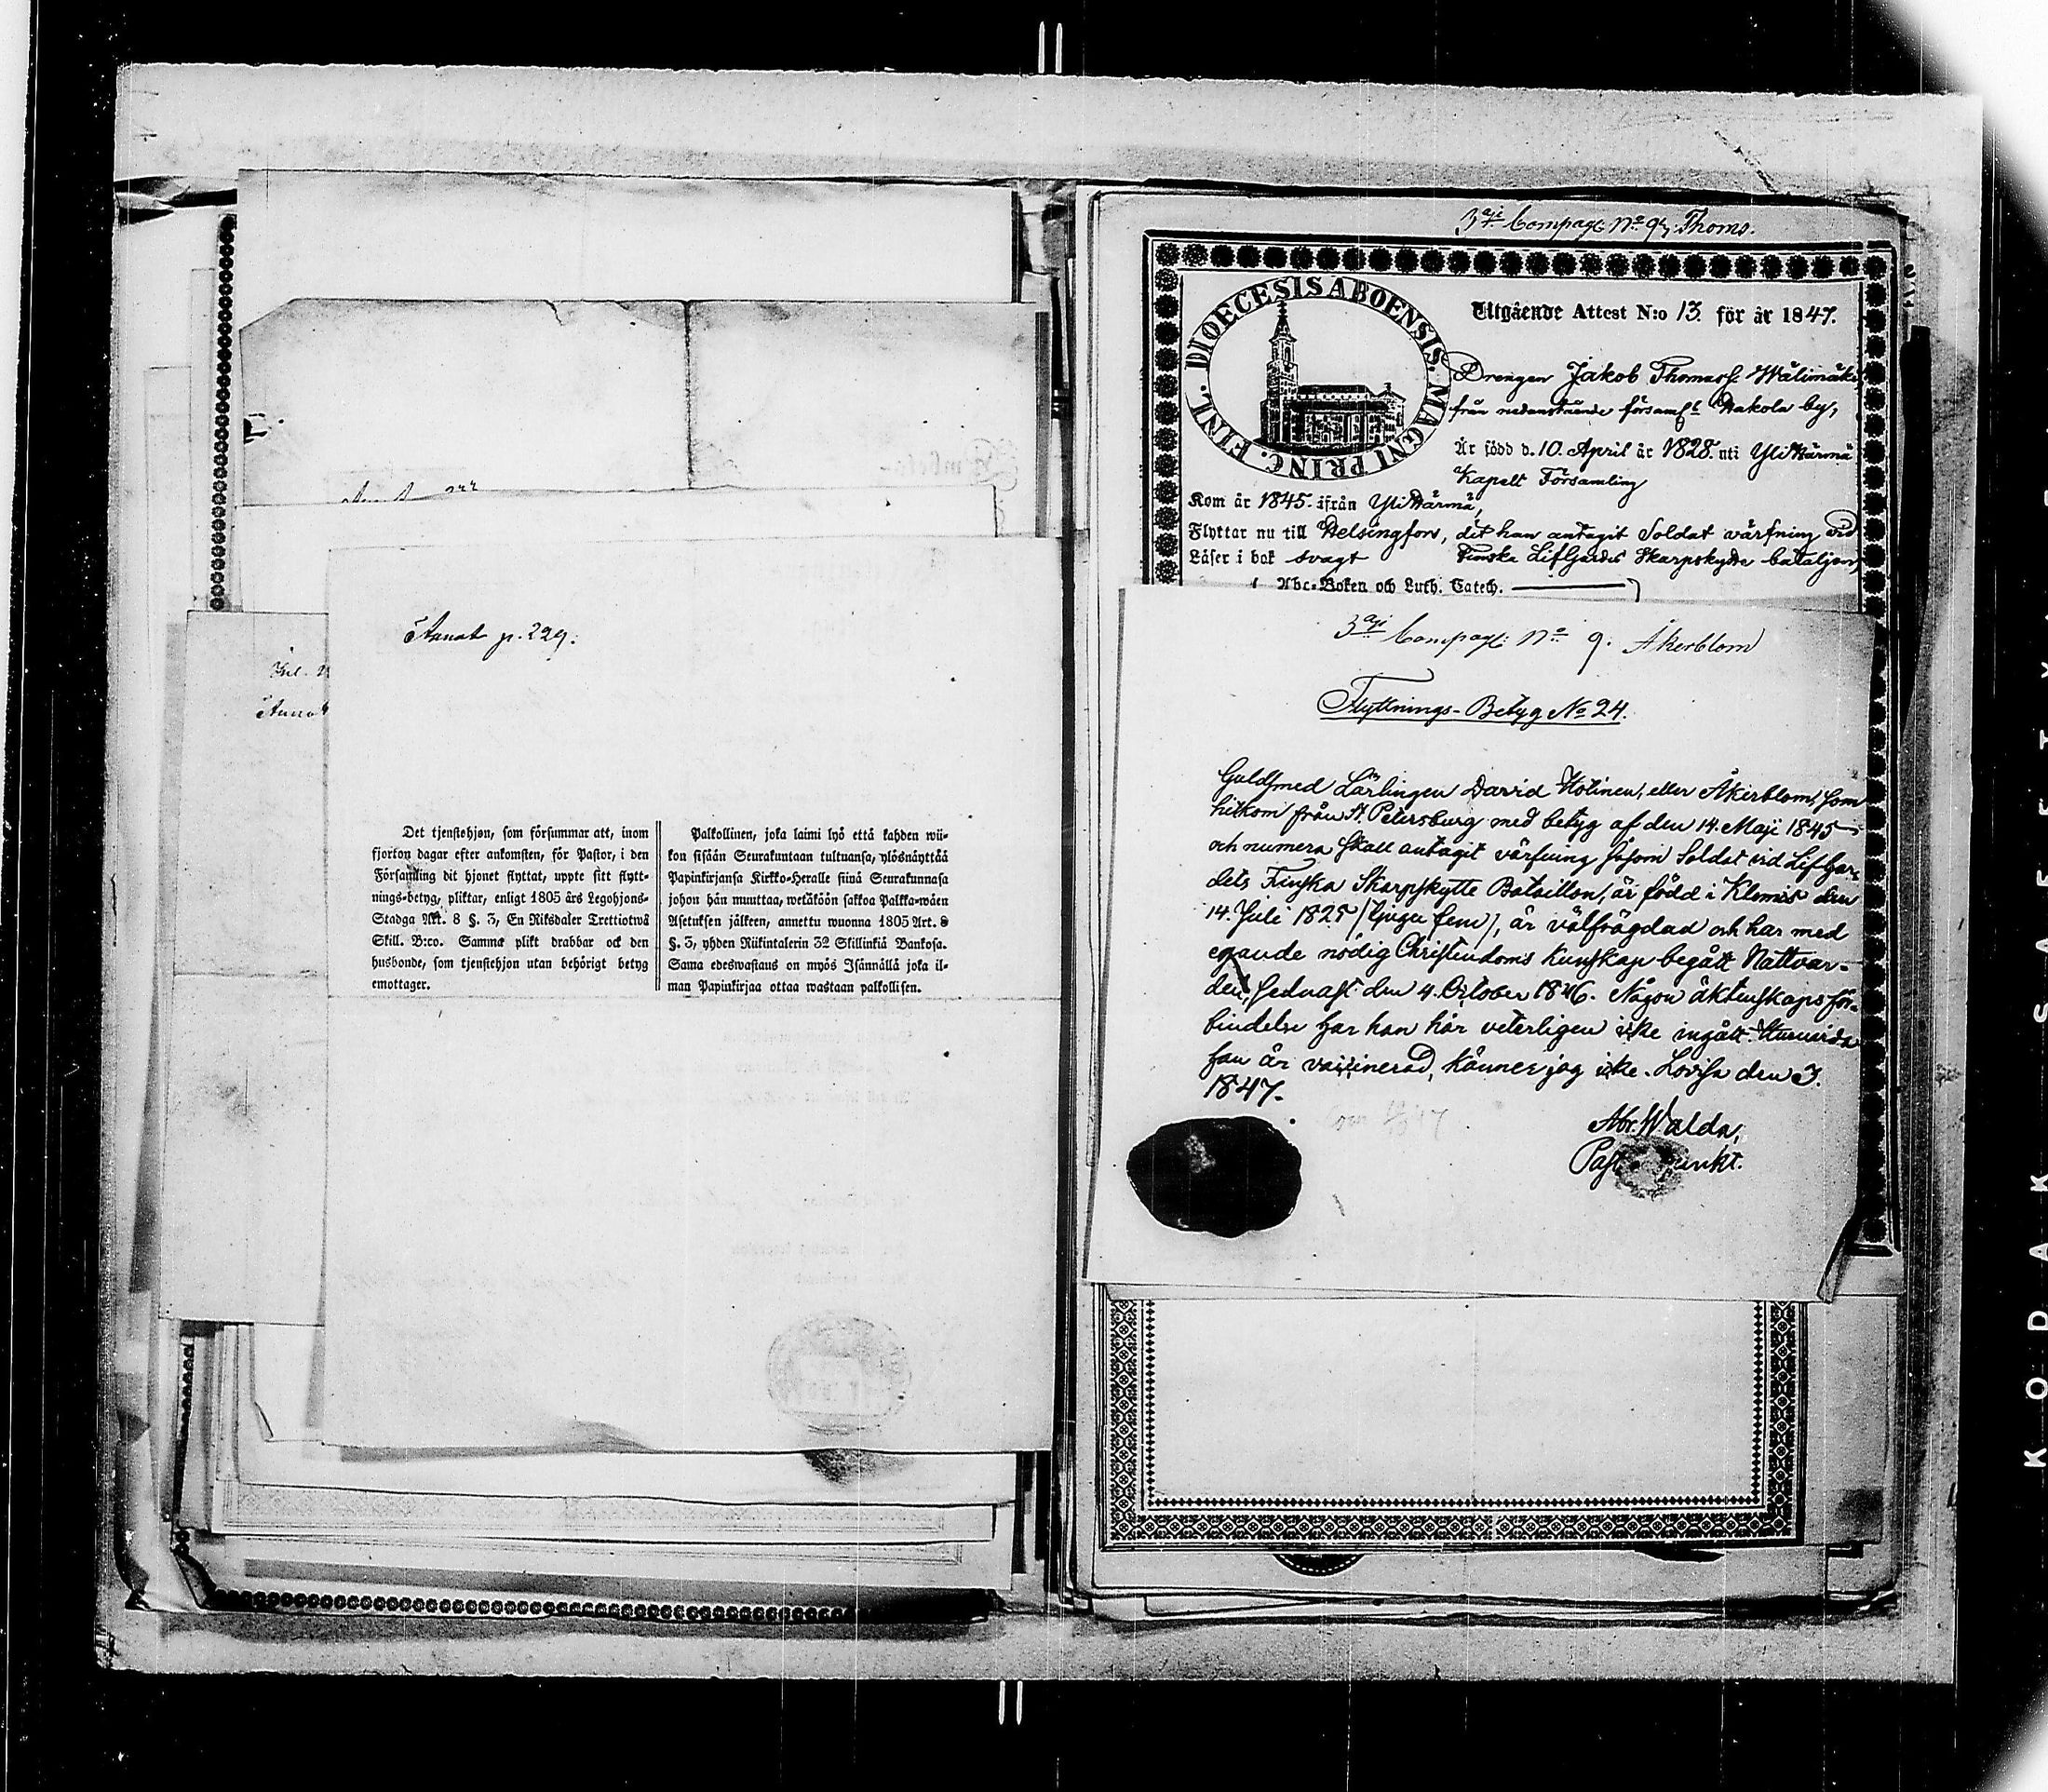 Annot p. 229.
Det tjenstehjon, som försummar att, inom
fjorton dagar efter ankomsten, för Pastor, i den
Församling dit hjonet flyttat, uppte sitt flytt-
nings-betyg, pliktar, enligt 1805 års Legohjons-
Stadga Art. 8 §. 3, En Riksdaler Trettiotwå
Skill. B:co. Samma plikt drabbar ock den
husbonde, som tjenstehjon utan behörigt betyg
emottager.
Palkollinen, joka laimi lyö että kahden wii-
kon sisään Seurakuntaan tultuansa, ylösnäyttää
Papinkirjansa Kirkko-Heralle siinä Seurakunnasa
johon hän muuttaa, wetäköön sakkoa Palkka-wäen
Asetuksen jälkeen, annettu wuonna 1805 Art. 8
§. 3, yhden Riikintalerin 32 Skillinkiä Bankosa.
Sama edeswastaus on myös Isännällä joka il-
man Papinkirjaa ottaa wastaan palkollisen.
3dje Compagt: No 97. Thoms.
DIOECESIS ABOENSIS. MAGNI PRINC. FINL.
Utgående Attest N:o 13. för år 1847.
Drengen Jakob Thomass: Wälimäki
från nedanstående församls Hakola by,
Är född d. 10. April år 1828. uti YliHärmä
Kapell Församling
Kom år 1845. ifrån YliHärmä,
Flyttar nu till Helsingfors, dit han antagit Soldat värfning vid
Läser i bok svagt Finska LifGardes Skarpskytte bataljon,
Abc-Boken och Luth. Catech.
3dje Compagt: No 9. Åkerblom
Flyttnings-Betyg No 24.
Guldsmed Lärlingen David Holinen, eller Åkerblom, som
hitkom från St. Petersburg med betyg af den 14. Maji 1845
och numera skall antagit värfning såsom Soldat vid Lifgar-
dets Finska Skarpskytte Bataillon, är född i Klemis den
14. Juli 1825 /tjugu fem/, är välfrägdad och har med
egande nödig Christendoms Kunskap begått Nattvar-
den, sednast den 4. October 1846. Någon äktenskapsför-
bindelse har han här veterligen icke ingått. Huruvida
han är vaccinerad, känner jag icke. Lovisa den 3.
1847.
Abr. Walda,